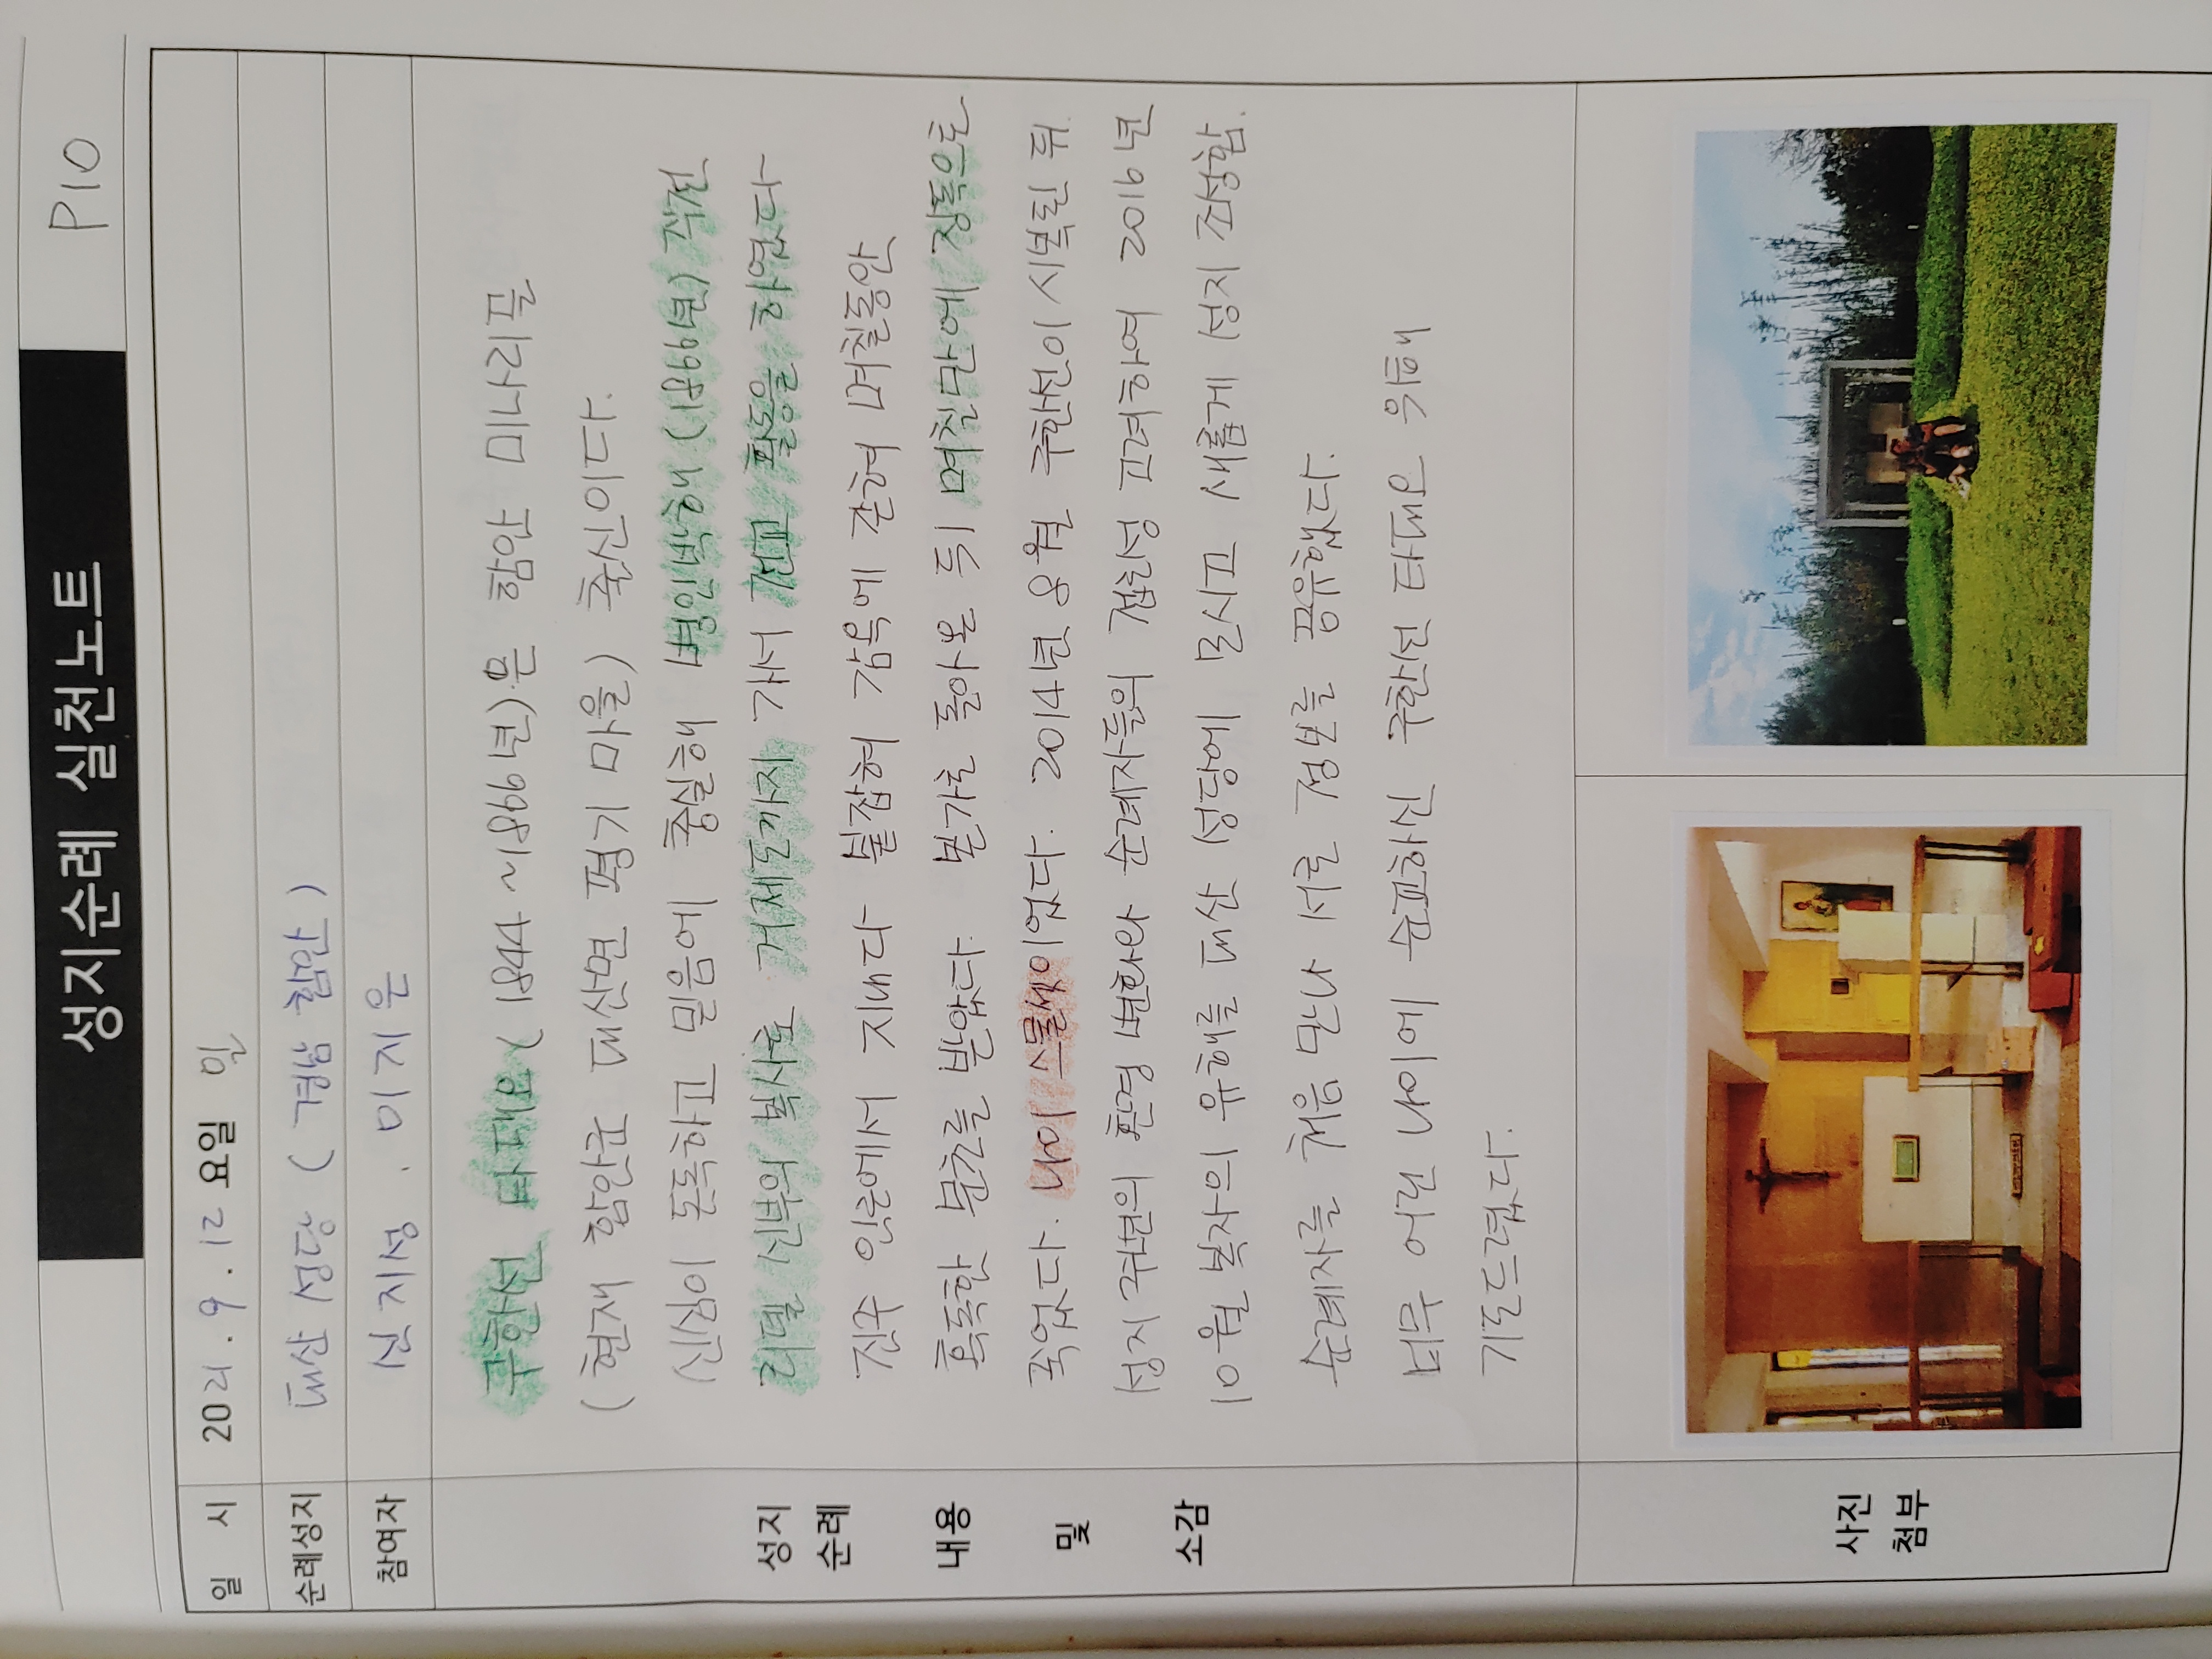 성지순례 실천노트 P10
일 시 2021.9.12 요일 일
순례성지 대산 성당 ( 경남 함안 )
참여자 신지성 . 이지은
구한선 타대오( 1844 ~1866년)은 함안 미나리골
( 현재 함안군 대산면 평기 마을) 출신이다.
신심이 돈독하고 믿음에 충실해 병인박해 (1866년) 직전
리델 신부의 복사로 거제도까지 가서 전교 활동을 하였다
진주 인근에서 지내다 붙잡혀 감옥에 갇혀 며칠동안
혹독한 문초를 받았다. 본가로 돌아온 뒤 며칠만에 장독으로
죽었다. 나이 스물셋이었다. 2014년 8월 구한선이 시복된 뒤
성지 주변의 환경 변화와 순례자들의 접근성 고려하여 2016년
10월 복자의 유해를 대산 성당에 모시고 새롭게 성지 조성함.
순례자를 처음 만나 서로 정보를 공유했다.
너무 어린 나이에 순교하신 구한선 타대오 위해
기도드렸다.
성지
순례
내용
및
소감
사진
첨부